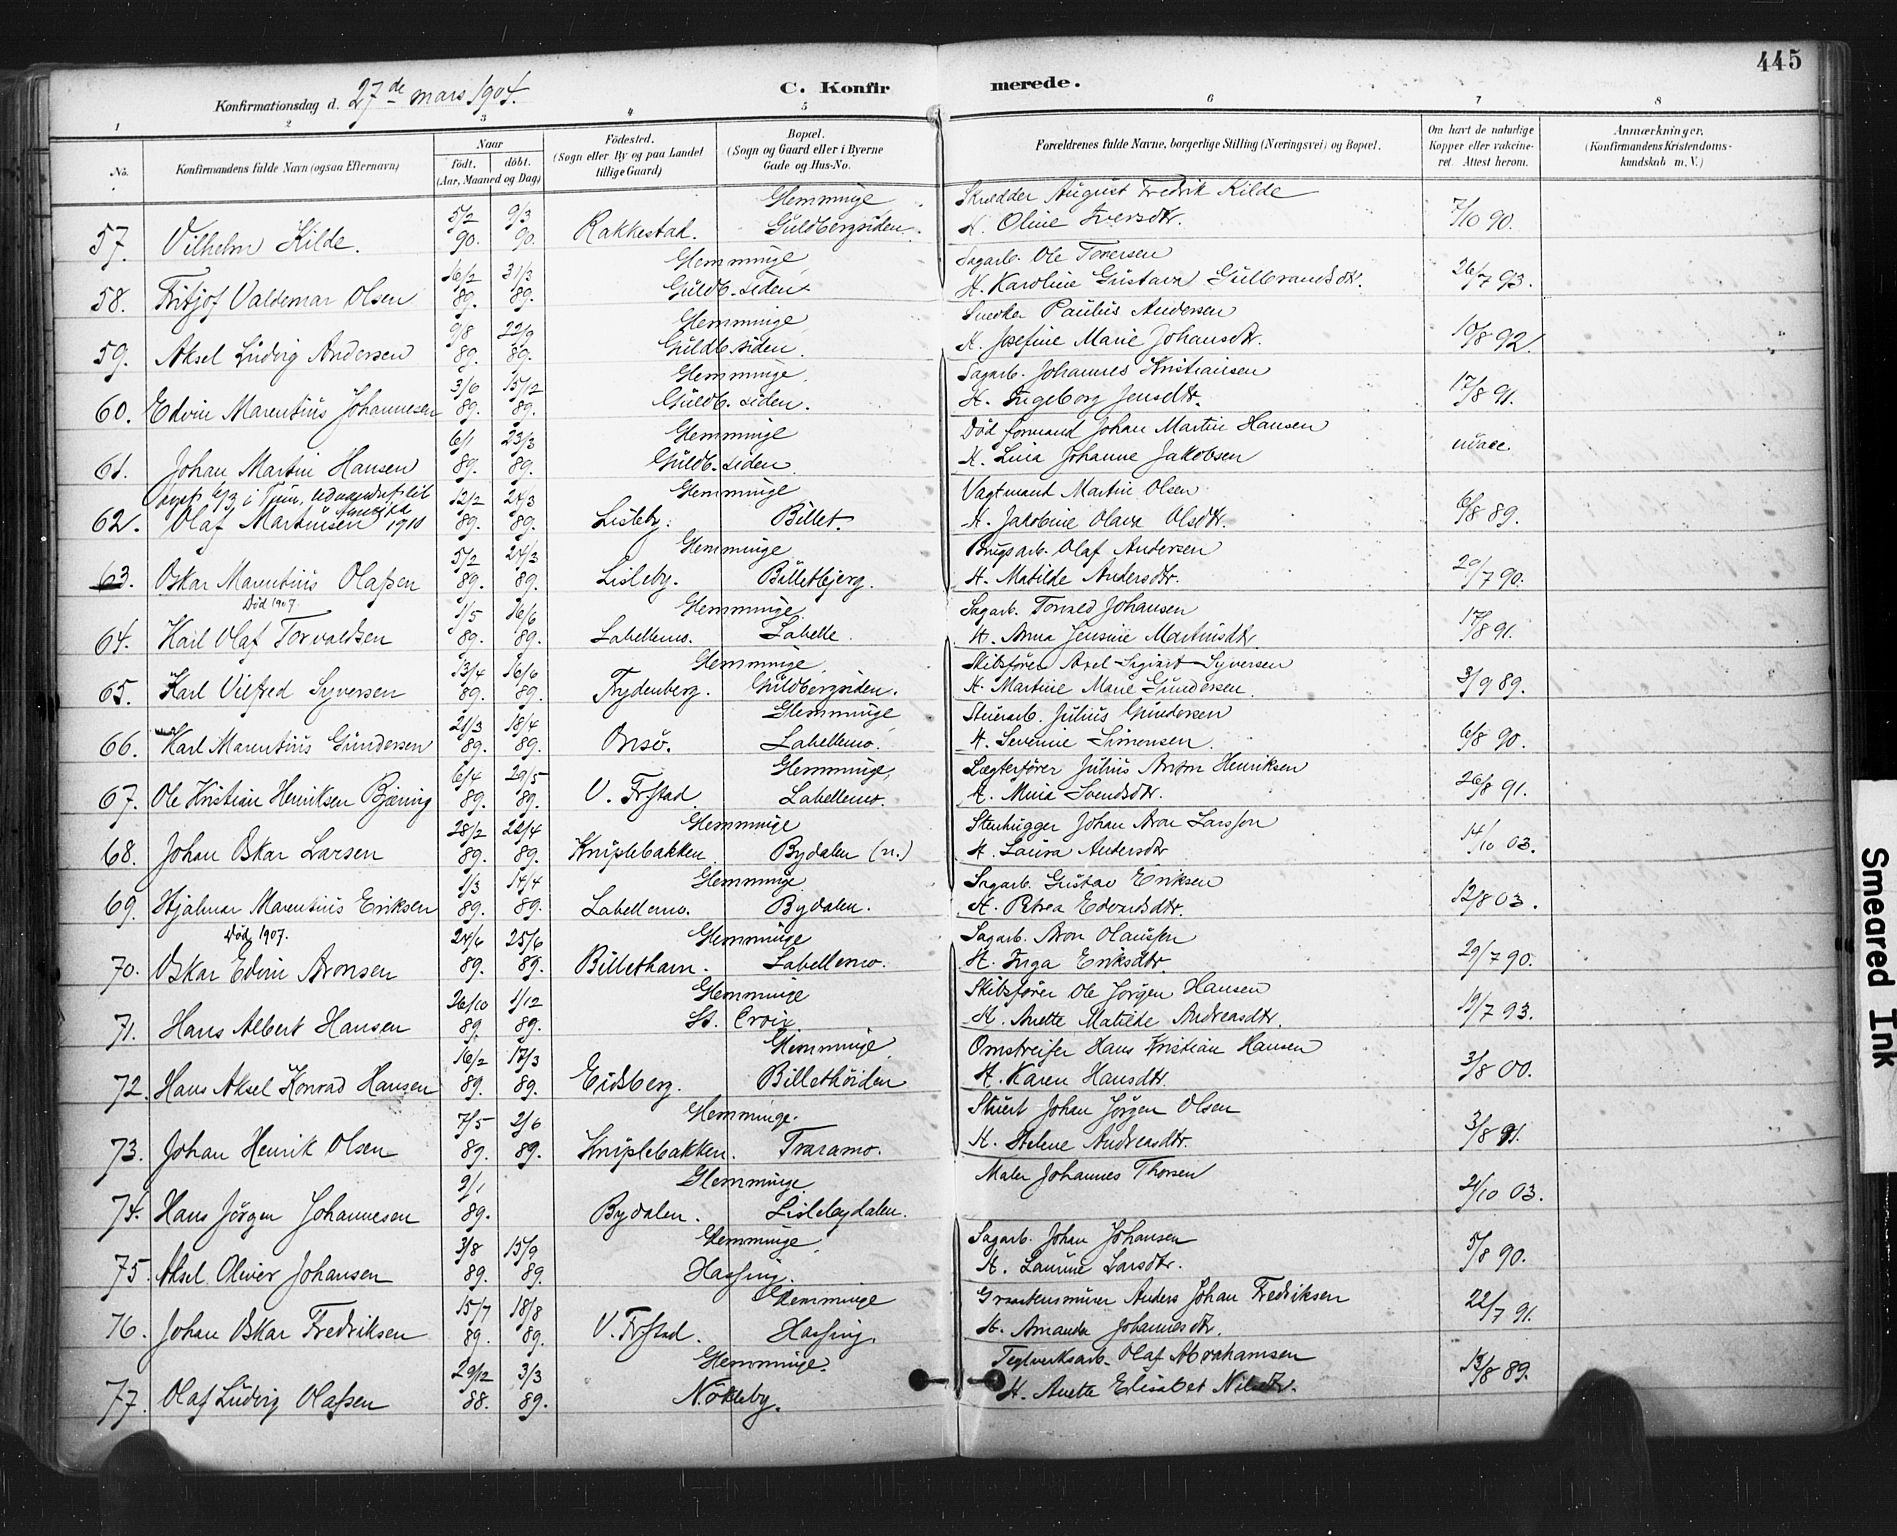 445
Konfirmationsdag d. 27de mars 1904.
C. Konfirmerede.
1 2 3 4 5 6 7 8
No. Konfirmandens fulde Navn (ogsaa Efternavn) Naar födt. döbt. (Aar, Maaned og Dag) Födested. (Sogn eller By og paa Landet tillige Gaard) Bopæl. (Sogn og Gaard eller i Byerne Gade og Hus-No. Forældrenes fulde Navne, borgerlige Stilling (Næringsvei) og Bopæl. Om havt de naturlige Kopper eller vakcineret. Attest herom. Anmærkninger. (Konfirmandens Kristendomskundskab m. V.)
Glemminge Skrædder August Fredrik Kilde
57. Vilhelm Kilde. 5/2 90. 9/3 90. Rakkestad. Guldbergsiden. H. Oline Iversdtr. 7/10 90.
Glemminge Sagarb. Ole Toversen
58. Fritjof Valdemar Olsen 16/2 89. 31/3 89. Guldb. siden. H. Karoline Gustava Gulbrandsdtr. 26/7 93.
Glemminge Snedker Paulus Andersen
59. Aksel Ludvig Andersen 9/8 89. 22/9 89. Guldb. siden. H. Josefine Marie Johansdtr. 10/8 92.
Glemminge Sagarb. Johannes Kristiansen
60. Edvin Marentius Johannesen 3/6 89. 15/12 89. Guldb. siden. H. Ingeborg Jensdtr. 17/8 91.
Glemminge Död formand Johan Martin Hansen
61. Johan Martin Hansen 6/1 89. 23/3 89. Guldb. siden H. Lina Johanne Jakobsen udvace.
6/3 i 1910
Glemminge Vagtmand Martin Olsen
62. Olaf Martinsen 12/2 89. 24/3 89. Lisleby. Billet. H. Jakobine Olava Olsdtr. 6/8 89.
Glemminge Brugsarb. Olaf Andersen
63. Oskar Marentius Olafsen 5/2 89. 24/3 89. Lisleby. Billetbjerg. H. Matilde Andersdtr. 29/7 90.
Död 1907.
Glemminge Sagarb. Torvald Johansen
64. Karl Olaf Torvaldsen 1/5 89. 16/6 89. Labellemo. Labelle. H. Anna Jensine Martinsdtr. 17/8 91.
Glemminge Skibsförer Axel Sigvart Syversen
65. Karl Vilfred Syversen 13/4 89. 16/6 89. Frydenberg. Guldbergsiden. H. Martine Marie Gundersen. 3/9 89.
Glemminge Stuerarb. Julius Gundersen
66. Karl Marentius Gundersen 21/3 89. 18/4 89. Onsö. Labellemo. H. Severine Simensen. 6/8 90.
Glemminge Lægterförer Julius Anton Henriksen
67. Ole Kristian Henriksen Bjöning 6/4 89. 29/5 89. V. Frstad. Labellemo. H. Mina Svendsdtr. 26/8 91.
Glemminge Stenhugger Johan Aron Larsson
68. Johan Oskar Larsen 28/2 89. 22/4 89. Kniplebakken. Bydalen (n.) H. Laura Andersdtr 14/10 03.
Glemminge Sagarb. Gustav Eriksen
69. Hjalmar Marentius Eriksen 1/3 89. 14/4 89. Labellemo. Bydalen. H. Petrea Edvardsdtr. 12/8 03.
Död 1907.
Glemminge Sagarb. Aron Olaussen
70. Oskar Edvin Aronsen 24/4 89. 25/6 89. Billetham. Labellemo. H. Inga Eriksdtr. 29/7 90.
Glemminge Skibsförer Ole Jörgen Hansen
71. Hans Albert Hansen 26/10 89. 1/12 89. St. Croix. H. Anette Matilde Andreasdtr. 19/7 93.
Glemminge Omstreifer Hans Kristian Hansen
72. Hans Aksel Konrad Hansen 16/2 89. 17/3 89. Eidsberg. Billethöiden H. Karen Hansdtr. 3/8 00.
Glemminge. Stuert Johan Jörgen Olsen
73. Johan Henrik Olsen 7/5 89. 2/6 89. Kniplebakken. Traramo. H. Helene Andreasdtr. 3/8 91.
Glemminge Maler Johannes Thorsen
74. Hans Jörgen Johannesen 2/1 89. Bydalen. Lislebydalen. 21/10 03.
Glemminge Sagarb. Johan Johansen
75. Aksel Oliver Johansen 3/8 89. 15/9 89. Hassing. H. Laurine Larsdtr. 5/8 90.
Glemminge Graastensmurer Anders Johan Fredriksen
76. Johan Oskar Fredriksen 15/7 89. 18/8 89. V. Frstad. Hassing. H. Amanda Johannesdtr. 22/7 91.
Glemminge. Teglverksarb. Olaf Abrahamsen
77. Olaf Ludvig Olafsen 29/12 88. 3/3 89. Nökleby. H. Anette Elisabet Nilsdtr. 13/8 89.
Smeared Ink